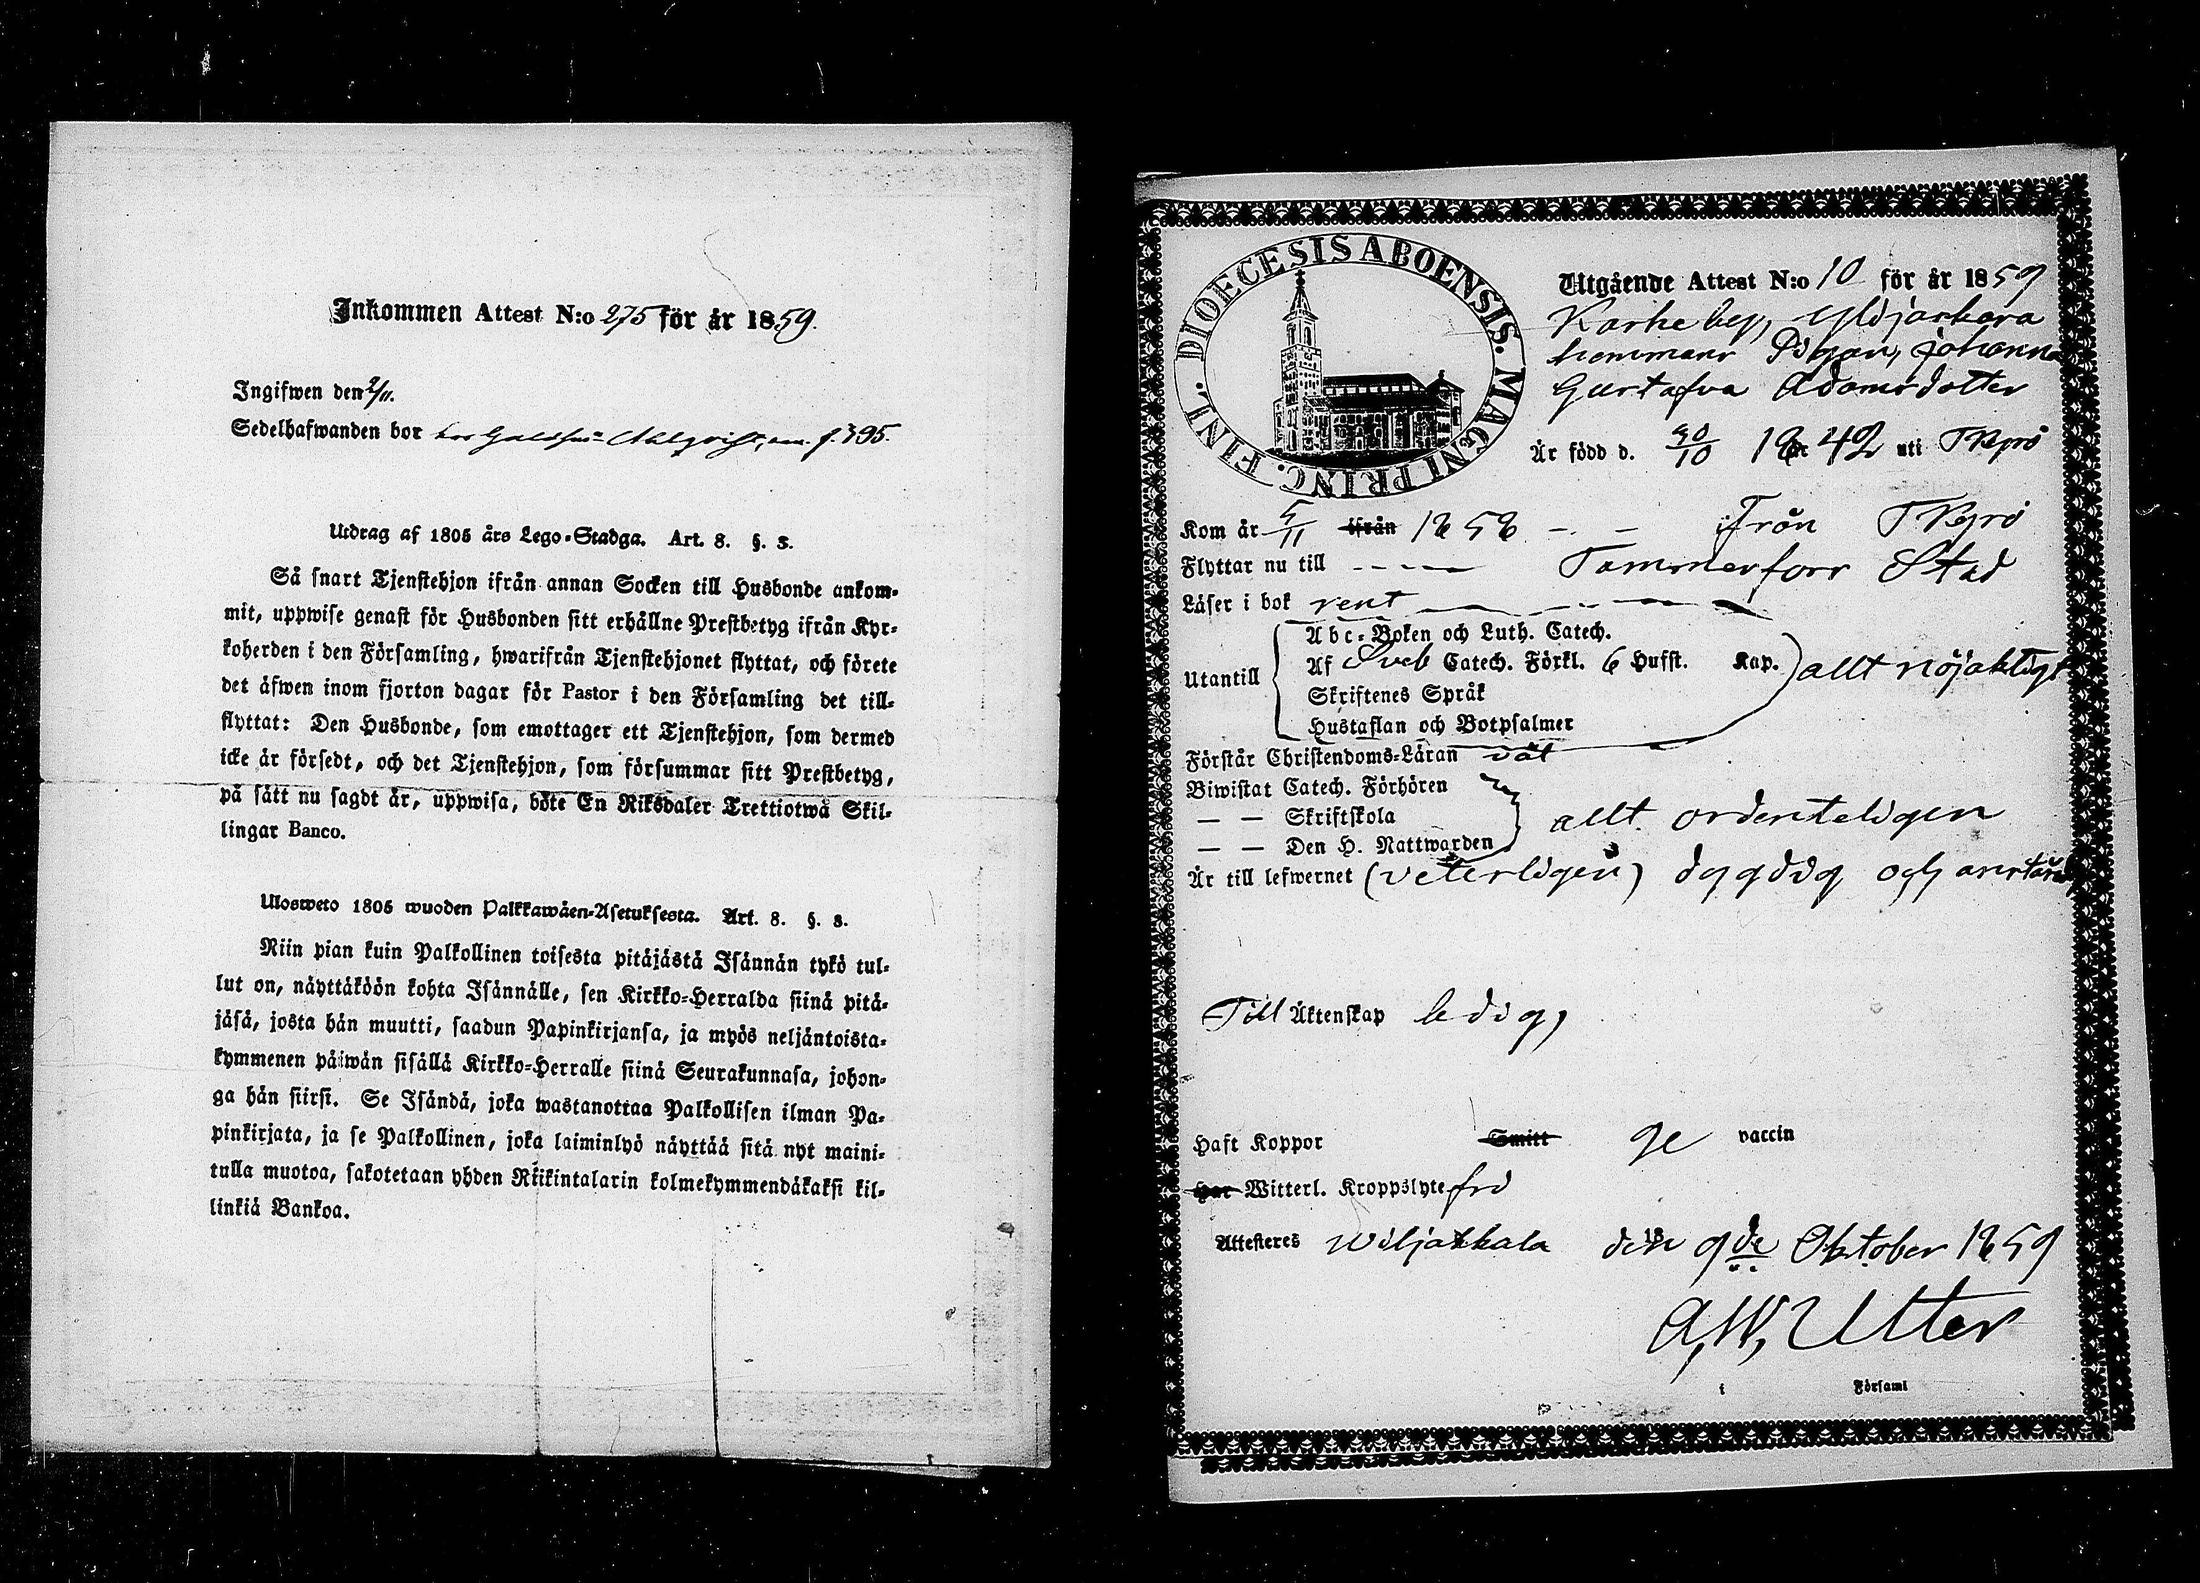 Inkommen Attest N:o 275 för år 1859.
Ingifwen den 2/11.
Sedelhafwanden bor hos f. 395.
Utdrag af 1805 års Lego-Stadga. Art. 8. §. 3.
Så snart Tjenstehjon ifrån annan Socken till Husbonde ankom-
mit, uppwise genast för Husbonden sitt erhållne Prestbetyg ifrån Kyr-
koherden i den Församling, hwarifrån Tjenstehjonet flyttat, och förete
det äfwen inom fjorton dagar för Pastor i den Församling det till-
flyttat: Den Husbonde, som emottager ett Tjenstehjon, som dermed
icke är försedt, och det Tjenstehjon, som försummar sitt Prestbetyg,
på sätt nu sagdt är, uppwisa, böte En Riksdaler Trettiotwå Skil-
lingar Banco.
Ulosweto 1805 wuoden Palkkawäen-Asetuksesta. Art. 8. §. 3.
Niin pian kuin Palkollinen toisesta pitäjästä Isännän tykö tul-
lut on, näyttäköön kohta Isännälle, sen Kirkko-Herralda siinä pitä-
jäsä, josta hän muutti, saadun Papinkirjansa, ja myös neljäntoista-
kymmenen päiwän sisällä Kirkko-Herralle siinä Seurakunnasa, johon-
ga hän siirsi. Se Isändä, joka wastanottaa Palkollisen ilman Pa-
pinkirjata, ja se Palkollinen, joka laiminlyö näyttää sitä nyt maini-
tulla muotoa, sakotetaan yhden Riikintalarin kolmekymmendäkaksi kil-
linkiä Bankoa.
DIOECESIS ABOENSIS. MAGNI PRINC. FINL.
Utgående Attest N:o 10 för år 1859
Karhe by, Yldjarkara
hemmans Pigan, Johanna
Gustafva Adamsdotter
Är född d. 30/10 1842 uti TKyrö
Kom år 5/11 ifrån 1858 - - ifrån TKyrö
Flyttar nu till - - - - Tammerfors Stad
Läser i bok rent
Utantill
Abc-Boken och Luth. Catech.
Af Sveb Catech. Förkl. 6 Hufst. Kap.
Skriftenes Språk
Hustaflan och Botpsalmer
allt nöjaktigt
Förstår Christendoms-Läran
Biwistat Catech. Förhören
— — Skriftskola
— — Den H. Nattwarden
allt ordenteligen
Är till lefwernet (veterligen) dygdig och
Till Äktenskap ledig,
Haft Koppor Smitt ge vaccin
Har Witterl. Kroppslyte fri
Attesteres Wiljakkala den 9de Oktober 1859
A, W, Utter
i Församl